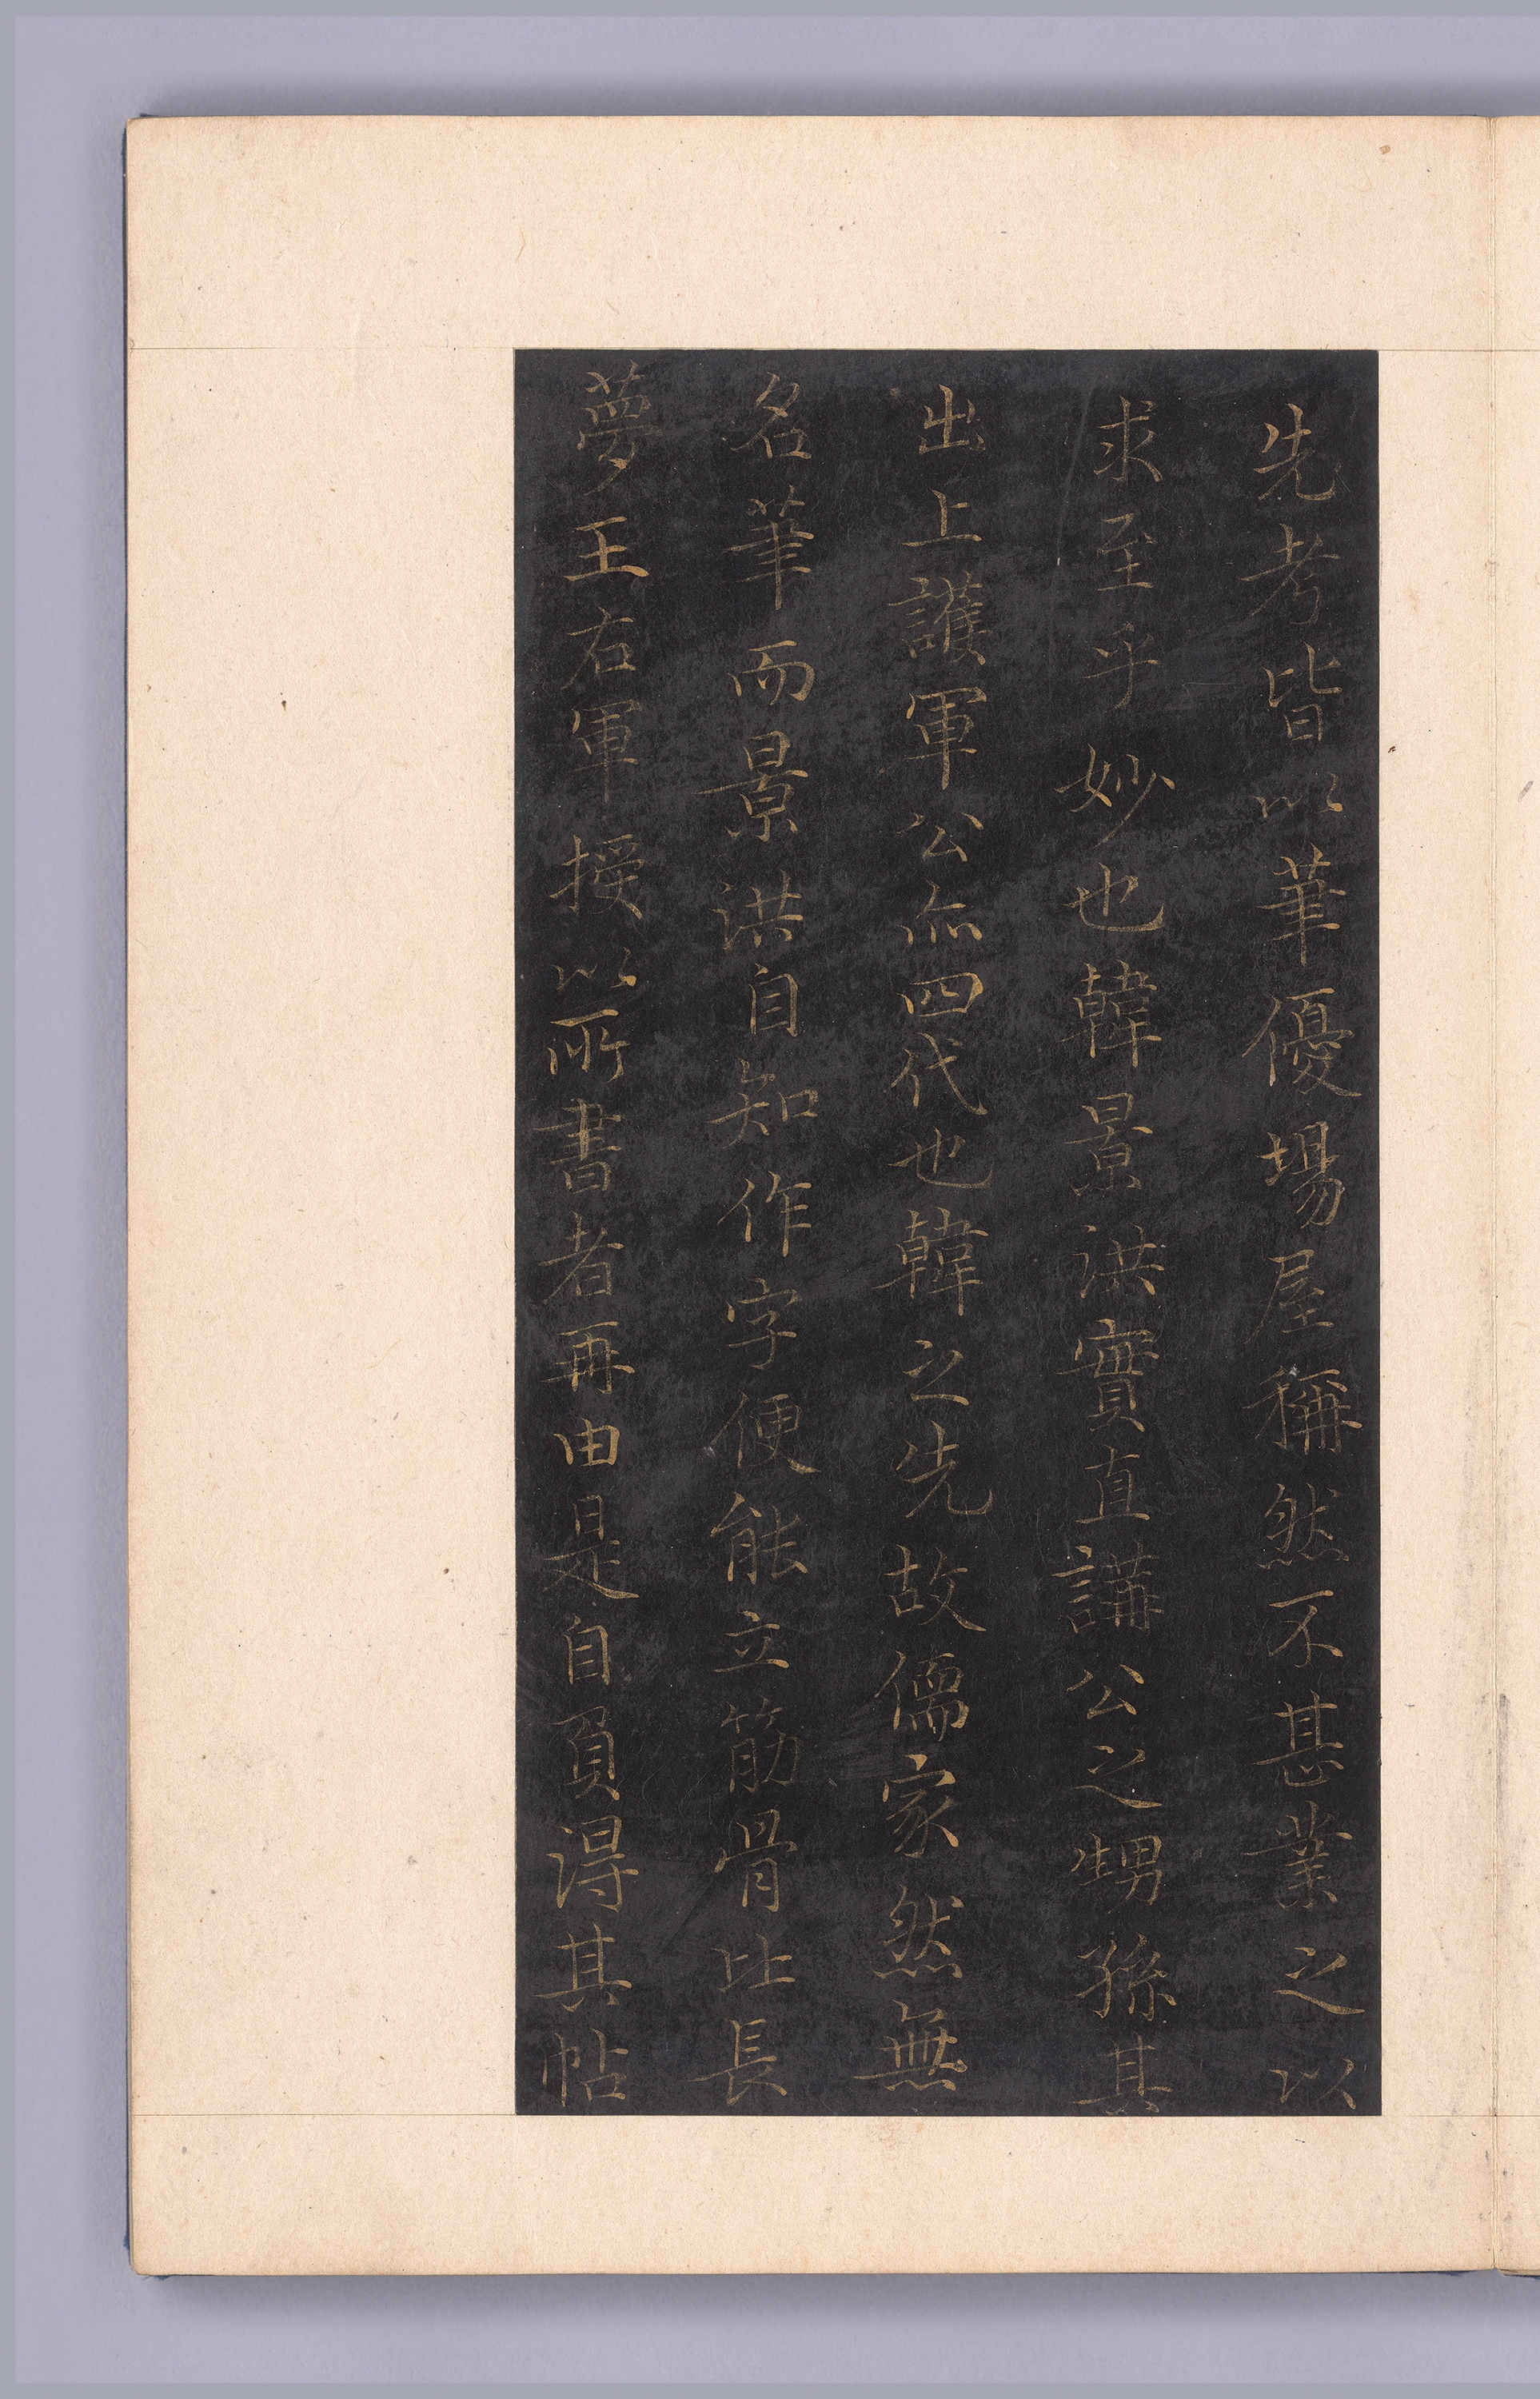 先考皆以筆優場屋稱然不甚業之以
求至乎妙也韓景洪實直講公之甥孫其
出上護軍公亦四代也韓之先故儒家然無
名筆而景洪自知作字便能立筋骨比長
夢王右軍授以所書者再由是自負得其帖